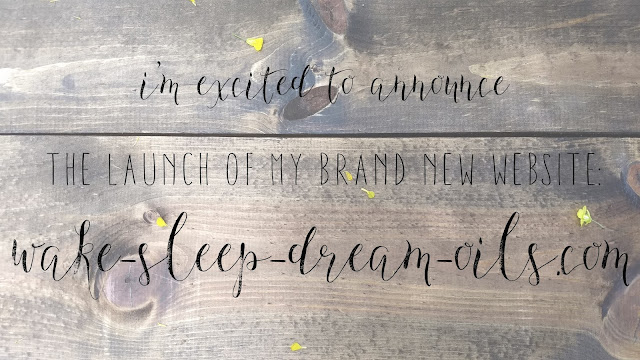 i'm excited to announce
THE LAUNCH OF MY BRAND NEW WEBSITE:
wake-sleep-dream-oils.com